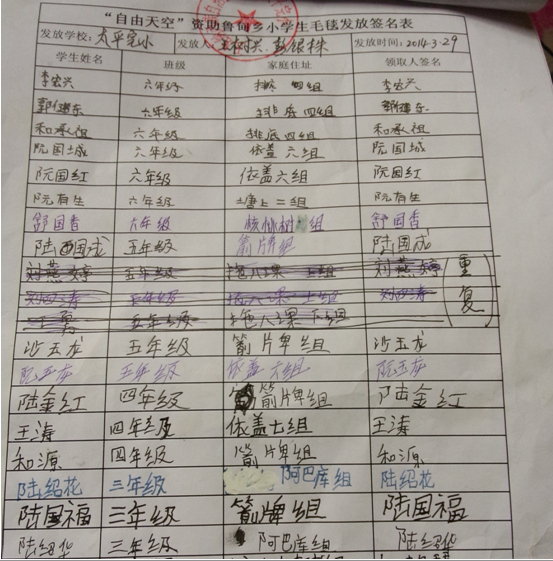 “自由天空”资助鲁甸乡小学生毛毯发放签名表
发放学校：太平完小 发放人：王树兴、彭银株 发放时间：2014-3-29
学生姓名 班级 家庭住址 领取人签名
李宏兴 六年级 排底四组 李宏兴
郭继东 六年级 排底四组 郭继东
和承祖 六年级 排底四组 和承祖
阮国城 六年级 依盖六组 阮国城
阮国红 六年级 依盖六组 阮国红
阮有生 六年级 塘上二组 阮有生
舒国香 六年级 核桃树组 舒国香
陆国成 五年级 箭牌组 陆国成
刘燕婷 五年级 拖八课上组 刘燕婷 （重复）
五年级 拖八课上组
王勇 五年级 拖八课下组
沙玉龙 五年级 箭牌组 沙玉龙
阮玉龙 五年级 依盖六组 阮玉龙
陆金红 四年级 箭牌组 陆金红
王涛 四年级 依盖七组 王涛
和源 四年级 箭牌组 和源
陆绍花 三年级 阿巴库组 陆绍花
陆国福 三年级 箭牌组 陆国福
陆绍华 三年级 阿巴库组 陆绍华